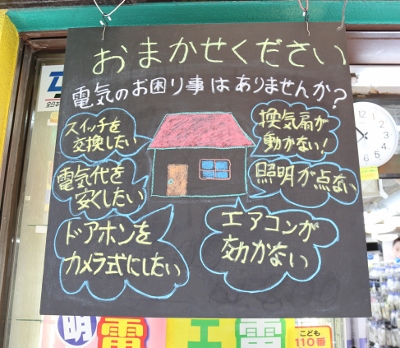 おまかせください
電気のお困り事はありませんか?
スイッチを
交換したい
換気扇が
動かない!
電気代を
安くしたい
照明が点ない
ドアホンを
カメラ式にしたい
エアコンが
効かない
明
電
工
電
こども
110番